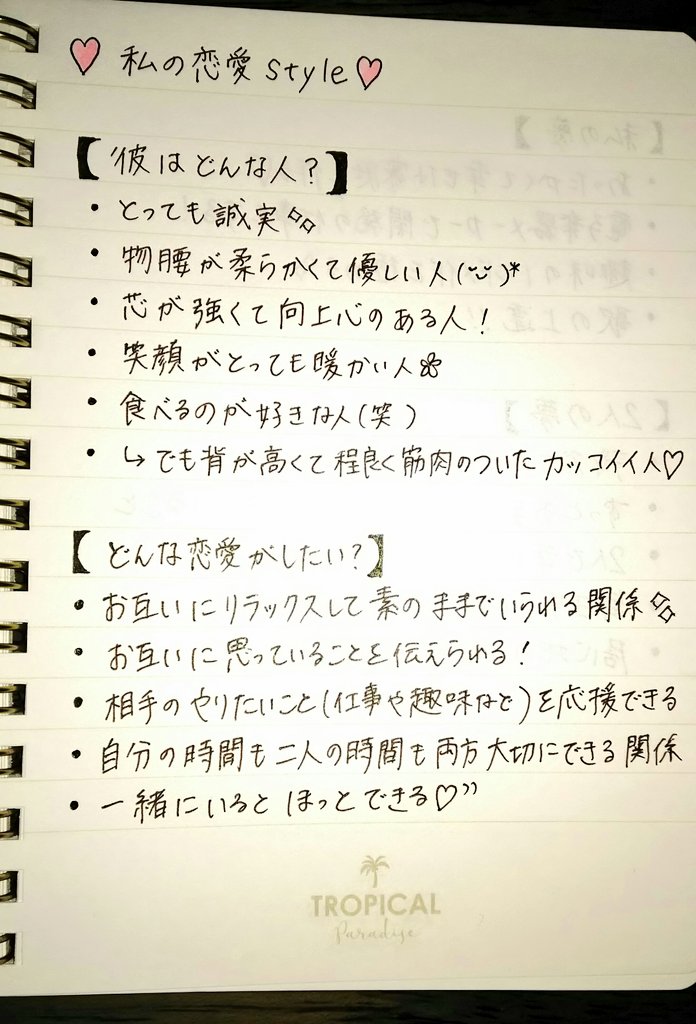 ♡ 私の恋愛 Style ♡
【彼はどんな人?】
・とっても誠実
・物腰が柔らかくて優しい人(¨̮ )*
・芯が強くて向上心のある人!
・笑顔がとっても暖かい人
・食べるのが好きな人(笑)
・↳でも背が高くて程良く筋肉のついたカッコイイ人♡
【どんな恋愛がしたい?】
・お互いにリラックスして素のままでいられる関係
・お互いに思っていることを伝えられる!
・相手のやりたいこと(仕事や趣味など)を応援できる
・自分の時間も二人の時間も両方大切にできる関係
・一緒にいるとほっとできる♡”
TROPICAL
Paradise